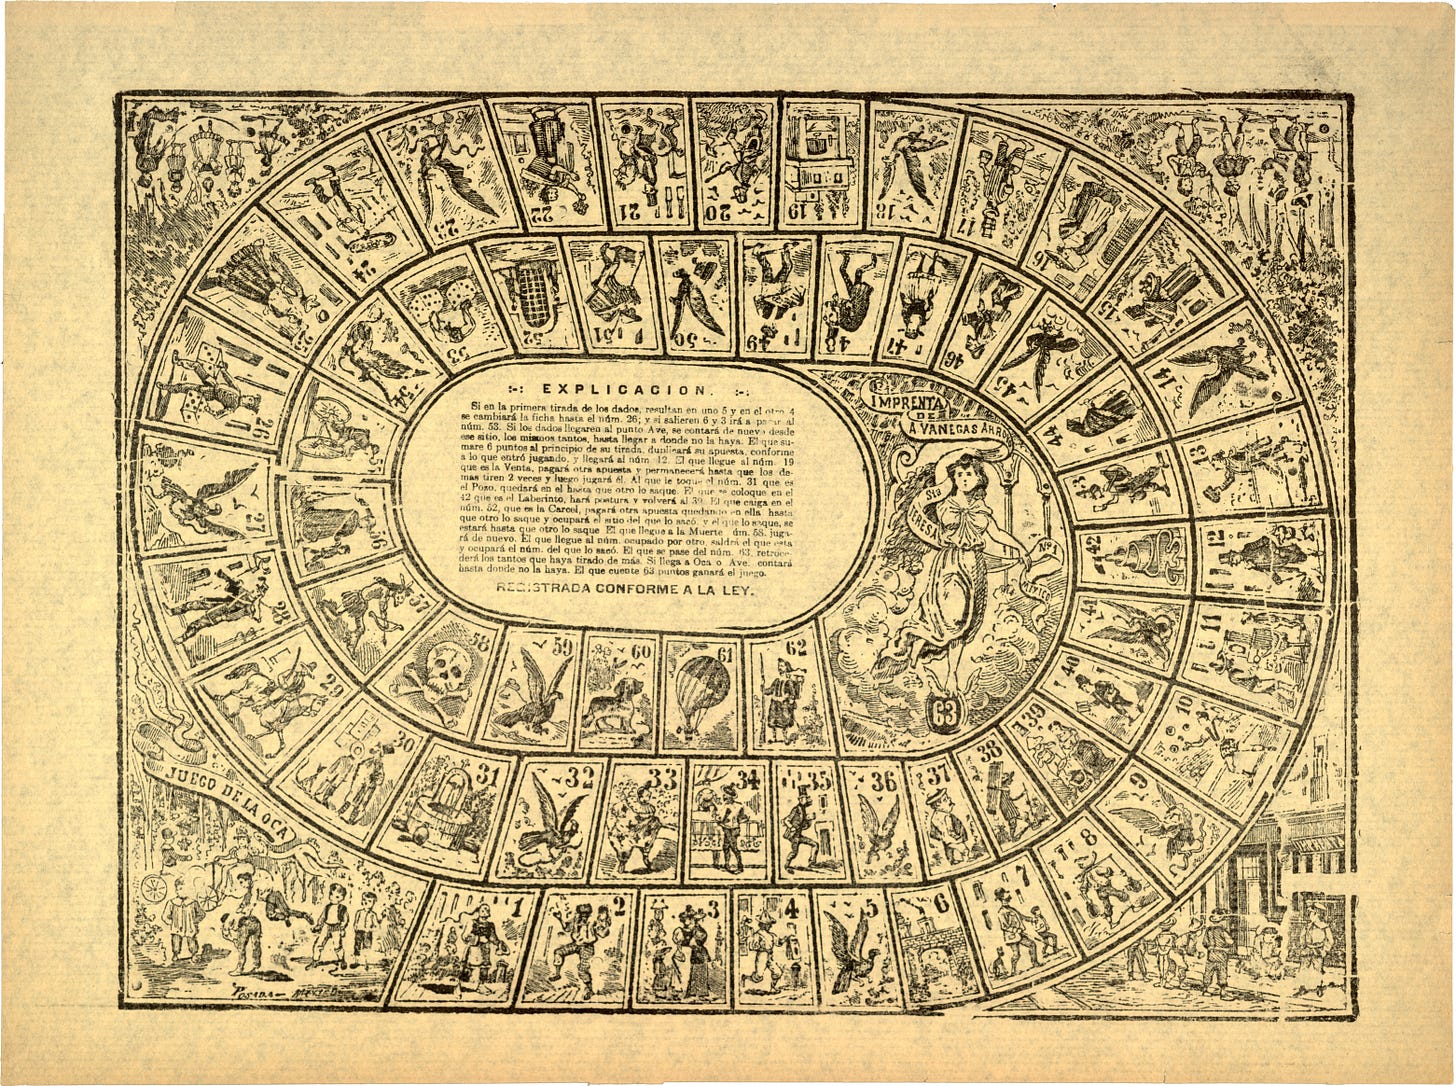 :-: EXPLICACION. :-:
Si en la primera tirada de los dados, resultan en uno 5 y en el otro 4
se cambiará la ficha hasta el núm. 26; y si salieren 6 y 3 irá a parar al
núm. 53. Si los dados llegaren al punto Ave, se contará de nuevo desde
ese sitio, los mismos tantos, hasta llegar a donde no la haya. El que su-
mare 6 puntos al principio de su tirada, duplicará su apuesta, conforme
a lo que entró jugando, y llegará al núm. 12. El que llegue al núm. 19
que es la Venta, pagará otra apuesta y permanecerá hasta que los de-
mas tiren 2 veces y luego jugará él. Al que le toque el núm. 31 que es
el Pozo, quedará en el hasta que otro lo saque. El que se coloque en el
42 que es el Laberinto, hará postura y volverá al 39. El que caiga en el
núm. 52, que es la Carcel, pagará otra apuesta quedando en ella hasta
que otro lo saque y ocupará el sitio del que lo sacó, y el que lo saque, se
estará hasta que otro lo saque El que llegue a la Muerte núm. 58, juga-
rá de nuevo. El que llegue al núm. ocupado por otro, saldrá el que esta
y ocupará el núm. del que lo sacó. El que se pase del núm. 63, retroce-
derá los tantos que haya tirado de más. Si llega a Oca o Ave, contará
hasta donde no la haya. El que cuente 63 puntos ganará el juego.
REGISTRADA CONFORME A LA LEY.
IMPRENTA
DE
A VANEGAS ARRO
Sta
TERESA
Nº 1
MEXICO
JUEGO DE LA OCA
POSADA - MEXICO
1
2
3
4
5
6
7
8
9
10
11
12
13
14
15
16
17
18
19
20
21
22
23
24
25
26
27
28
29
30
31
32
33
34
35
36
37
38
39
40
41
42
43
44
45
46
47
48
49
50
51
52
53
54
56
57
58
59
60
61
62
63